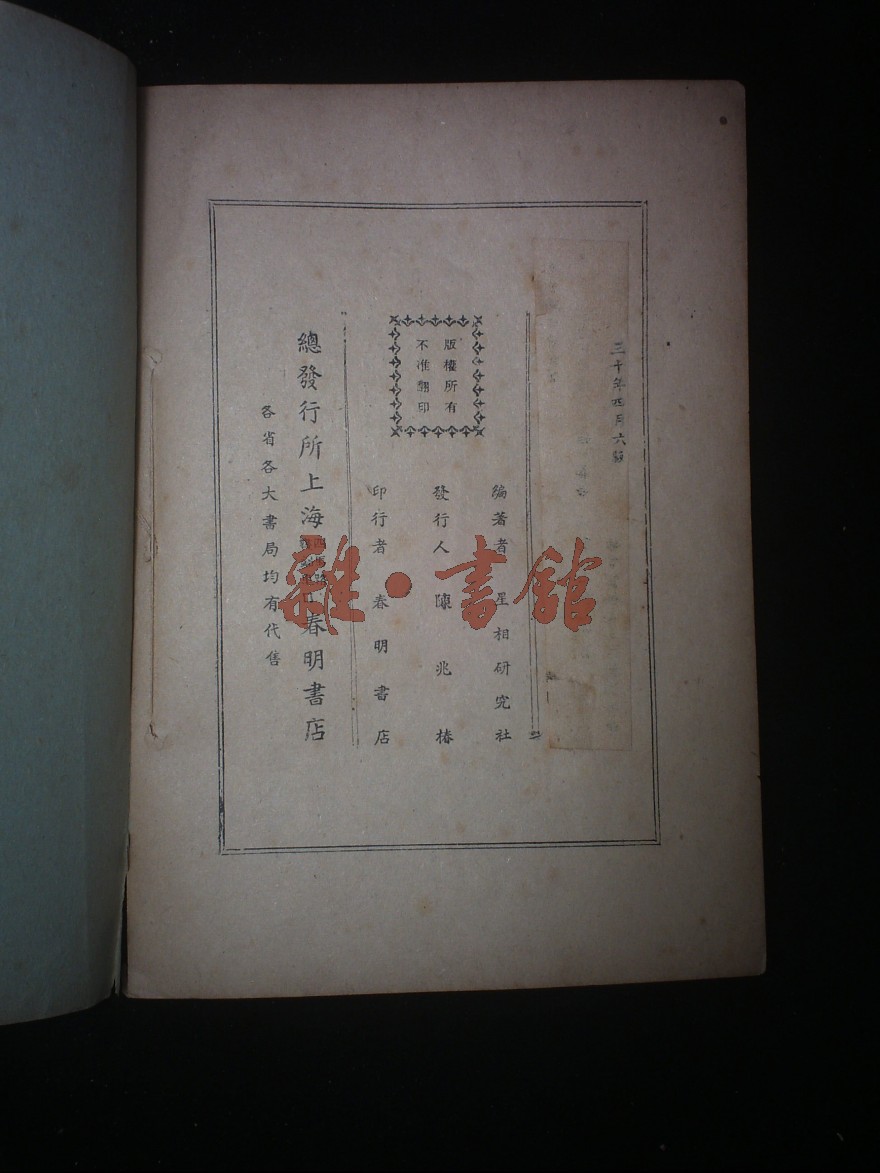 三十年四月六版
版權所有
不准翻印
編著者 星相研究社
發行人 陳兆椿
印行者 春明書店
總發行所上海
春明書店
各省各大書局均有代售
雜·書館